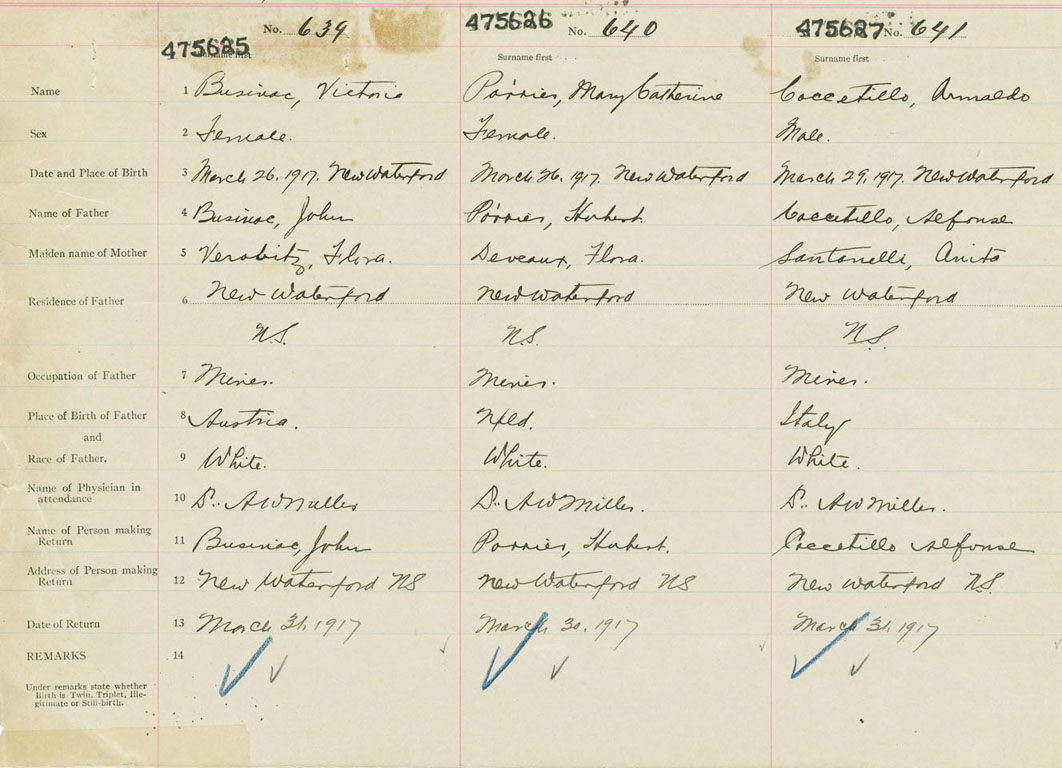 No. 639 475626 No. 640 475627 No. 641
475625 Surname first Surname first
Name 1 Businac, Victoria Poirier, Mary Catherine Coccetillo, Armaldo
Sex 2 Female. Female. Male.
Date and Place of Birth 3 March 26. 1917. New Waterford March 26. 1917. New Waterford March 29, 1917. New Waterford
Name of Father 4 Businac, John Poirier, Hubert. Coccetillo, Alfonse
Maiden name of Mother 5 Verobitz, Flora. Deveaux, Flora. Santonelli, Anita
Residence of Father 6 New Waterford New Waterford New Waterford
N.S. N.S. N.S.
Occupation of Father 7 Miner. Miner. Miner.
Place of Birth of Father 8 Austria. Nfld. Italy
and
Race of Father. 9 White. White. White.
Name of Physician in
attendance 10 Dr. A W Miller Dr. A W Miller. Dr. A W Miller.
Name of Person making
Return 11 Businac, John Poirier, Hubert. Coccetillo Alfonse
Address of Person making
Return 12 New Waterford NS New Waterford NS New Waterford N.S.
Date of Return 13 March 31, 1917 March 30, 1917 March 31, 1917
REMARKS 14
Under remarks state whether
Birth is Twin, Triplet, Ille-
gitimate or Still-birth.